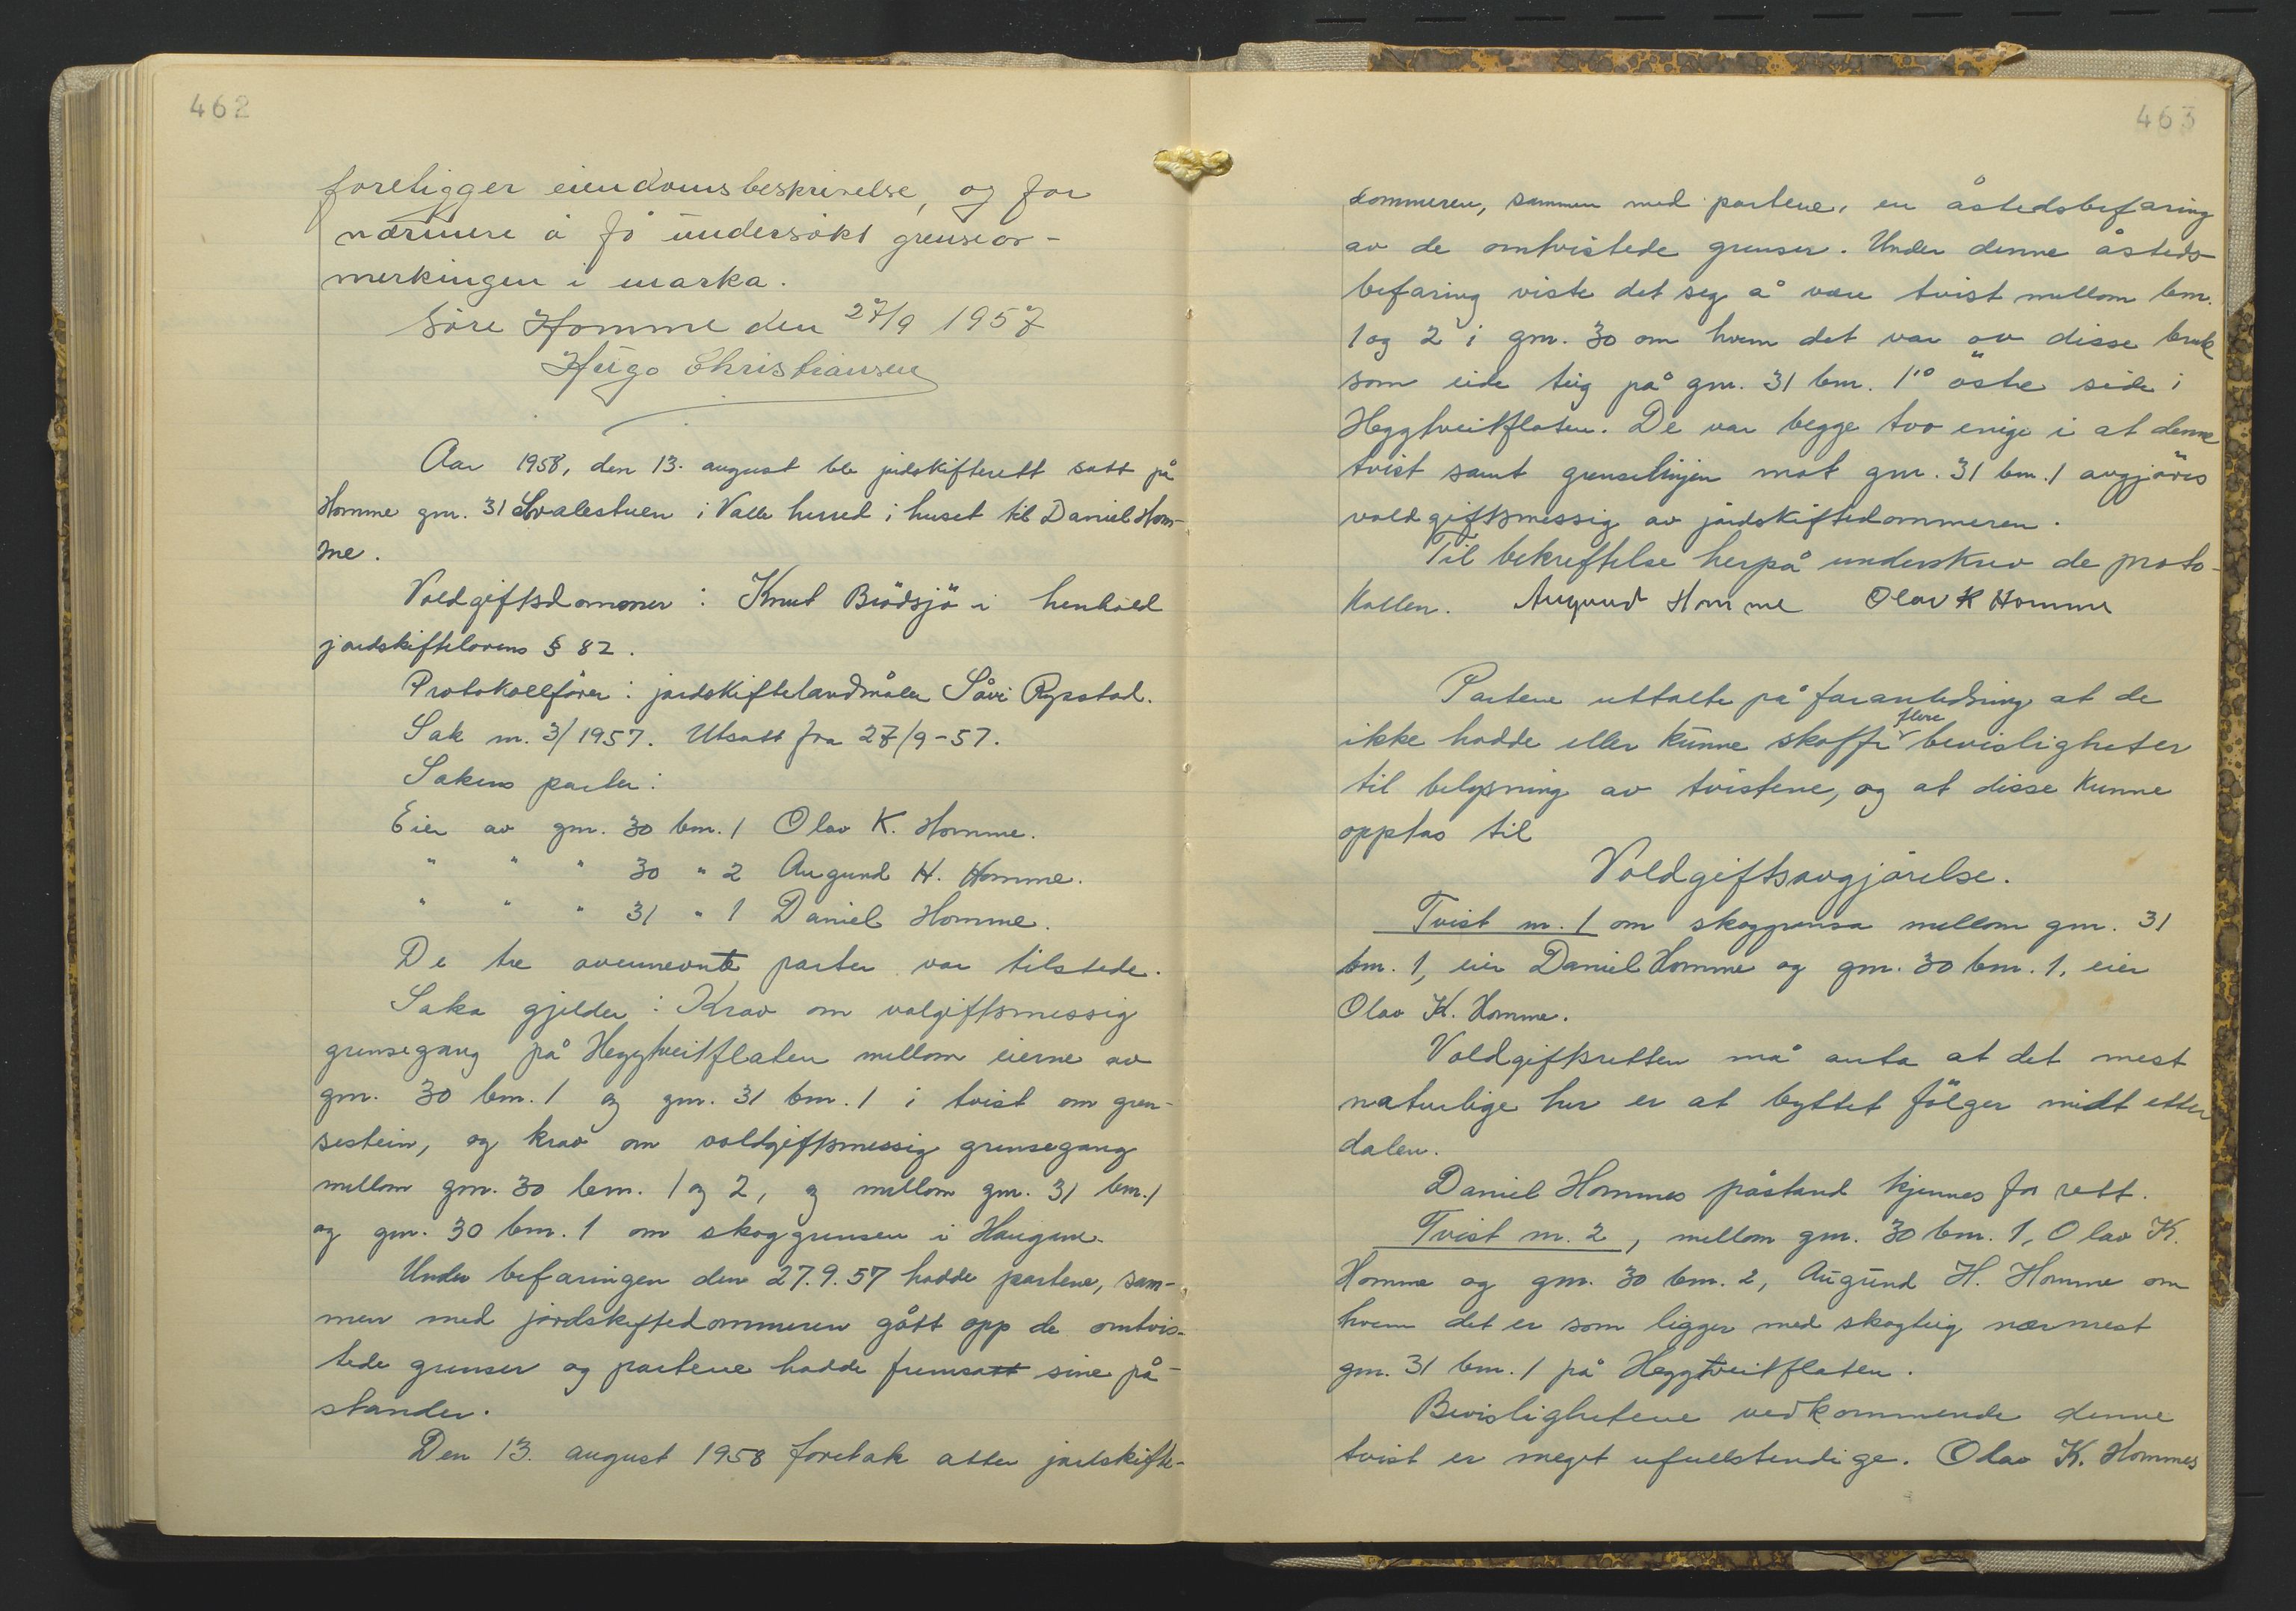 462
foreligger eiendomsbeskrivelse, og for
nærmere å få undersøkt grenseav-
merkingen i marka.
Søre Homme den 27/9 1957
Hugo Christiansen
Aar 1958, den 13. august ble jordskifterett satt på
Homme gnr. 31 Svalestuen i Valle herred i huset til Daniel Hom-
me.
Voldgiftsdommer: Knut Brödsjö i henhold
jordskiftelovens § 82.
Protokollförer: jordskiftelandmåler Såvi Rysstad.
Sak nr. 3/1957. Utsatt fra 27/9-57.
Sakens parter:
Eier av gnr. 30 bnr. 1 Olav K. Homme.
" " " 30 " 2 Augund H. Homme.
" " " 31 " 1 Daniel Homme.
De tre ovennevnte parter var tilstede.
Saka gjelder: Krav om valgiftsmessig
grensegang på Heggtveitflaten mellom eierne av
gnr. 30 bnr. 1 og gnr. 31 bnr. 1 i tvist om gren-
sestein, og krav om voldgiftsmessig grensegang
mellom gnr. 30 bnr. 1 og 2, og mellom gnr. 31 bnr. 1
og gnr. 30 bnr. 1 om skoggrensen i Haugane.
Under befaringen den 27.9.57 hadde partene, sam-
men med jordskiftedommeren gått opp de omtvis-
tede grenser og partene hadde fremsatt sine på-
stander.
Den 13. august 1958 foretok atter jordskifte-
463
dommeren, sammen med partene, en åstedsbefaring
av de omtvistede grenser. Under denne åsteds-
befaring viste det seg å være tvist mellom bnr.
1 og 2 i gnr. 30 om hvem det var av disse bruk
som eide teig på gnr. 31 bnr. 1's östre side i
Heggtveitflaten. De var begge två enige i at denne
tvist samt grenselinjen mot gnr. 31 bnr. 1 avgjöres
voldgiftsmessig av jordskiftedommeren.
Til bekreftelse herpå underskrev de proto-
kollen. Augund Homme Olav K Homme
Partene uttalte på foranledning at de
ikke hadde eller kunne skaffe flere bevisligheter
til belysning av tvistene, og at disse kunne
opptas til
Voldgiftsavgjörelse.
Tvist nr. 1 om skoggrensa mellom gnr. 31
bnr. 1, eier Daniel Homme og gnr. 30 bnr. 1, eier
Olav K. Homme.
Voldgiftsretten må anta at det mest
naturlige her er at byttet fölger midt etter
dalen.
Daniel Hommes påstand kjennes for rett.
Tvist nr. 2, mellom gnr. 30 bnr. 1, Olav K.
Homme og gnr. 30 bnr. 2, Augund H. Homme om
hvem det er som ligger med skogteig nærmest
gnr. 31 bnr. 1 på Heggtveitflaten.
Bevislighetene vedkommende denne
tvist er meget ufullstendige. Olav K. Hommes